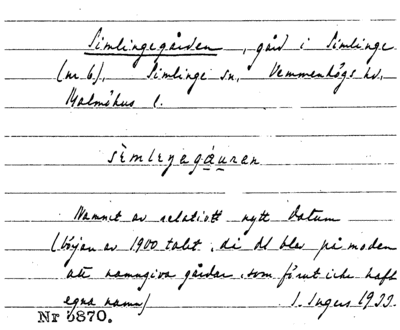 Simlingegården, gård i Simlinge
(nr 6), Simlinge sn, Vemmenhögs hd,
Malmöhus l.
Namnet av relativt nytt datum
(början av 1900 talet, då det blev på moden
att namngiva gårdar, som förut icke haft
egna namn) I. Ingers 1933.
Nr 5870.